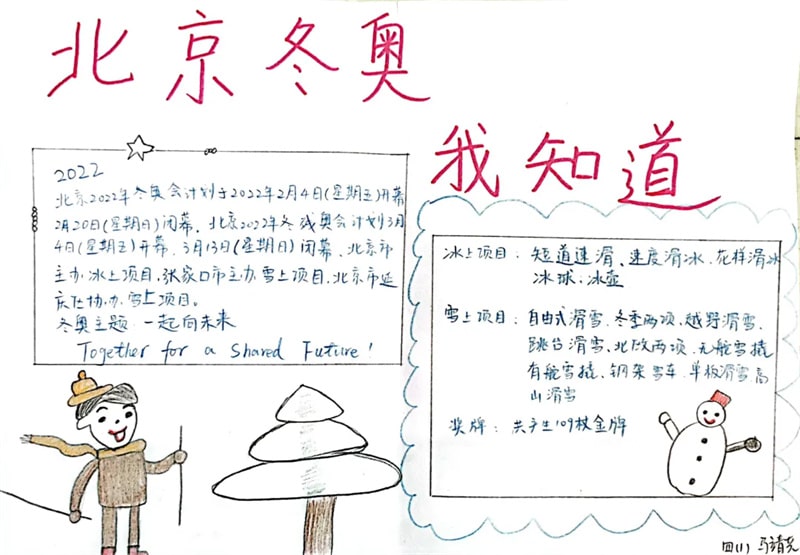 北京冬奥
我知道
2022
北京2022年冬奥会计划于2022年2月4日(星期五)开幕
2月20日(星期日)闭幕、北京2022年冬残奥会计划3月
4日(星期五)开幕、3月13日(星期日)闭幕、北京市
主办冰上项目、张家口市主办雪上项目、北京市延
庆区协办雪上项目。
冬奥主题 一起向未来
Together for a Shared Future!
冰上项目: 短道速滑、速度滑冰、花样滑冰
冰球、冰壶
雪上项目: 自由式滑雪、冬季两项、越野滑雪、
跳台滑雪、北欧两项、无舵雪橇
有舵雪橇、钢架雪车、单板滑雪高
山滑雪
奖牌: 共产生109枚金牌
四(1) 马靖尧